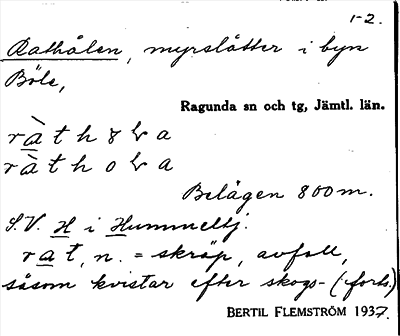 1-2.
Rathålen, myrslåtter i byn
Böle,
Ragunda sn och tg, Jämtl. län.
Belägen 800 m.
S.V. H i Hummeltj.
rat, n. = skräp, avfall,
såsom kvistar efter skogs- (forts.)
BERTIL FLEMSTRÖM 1937.